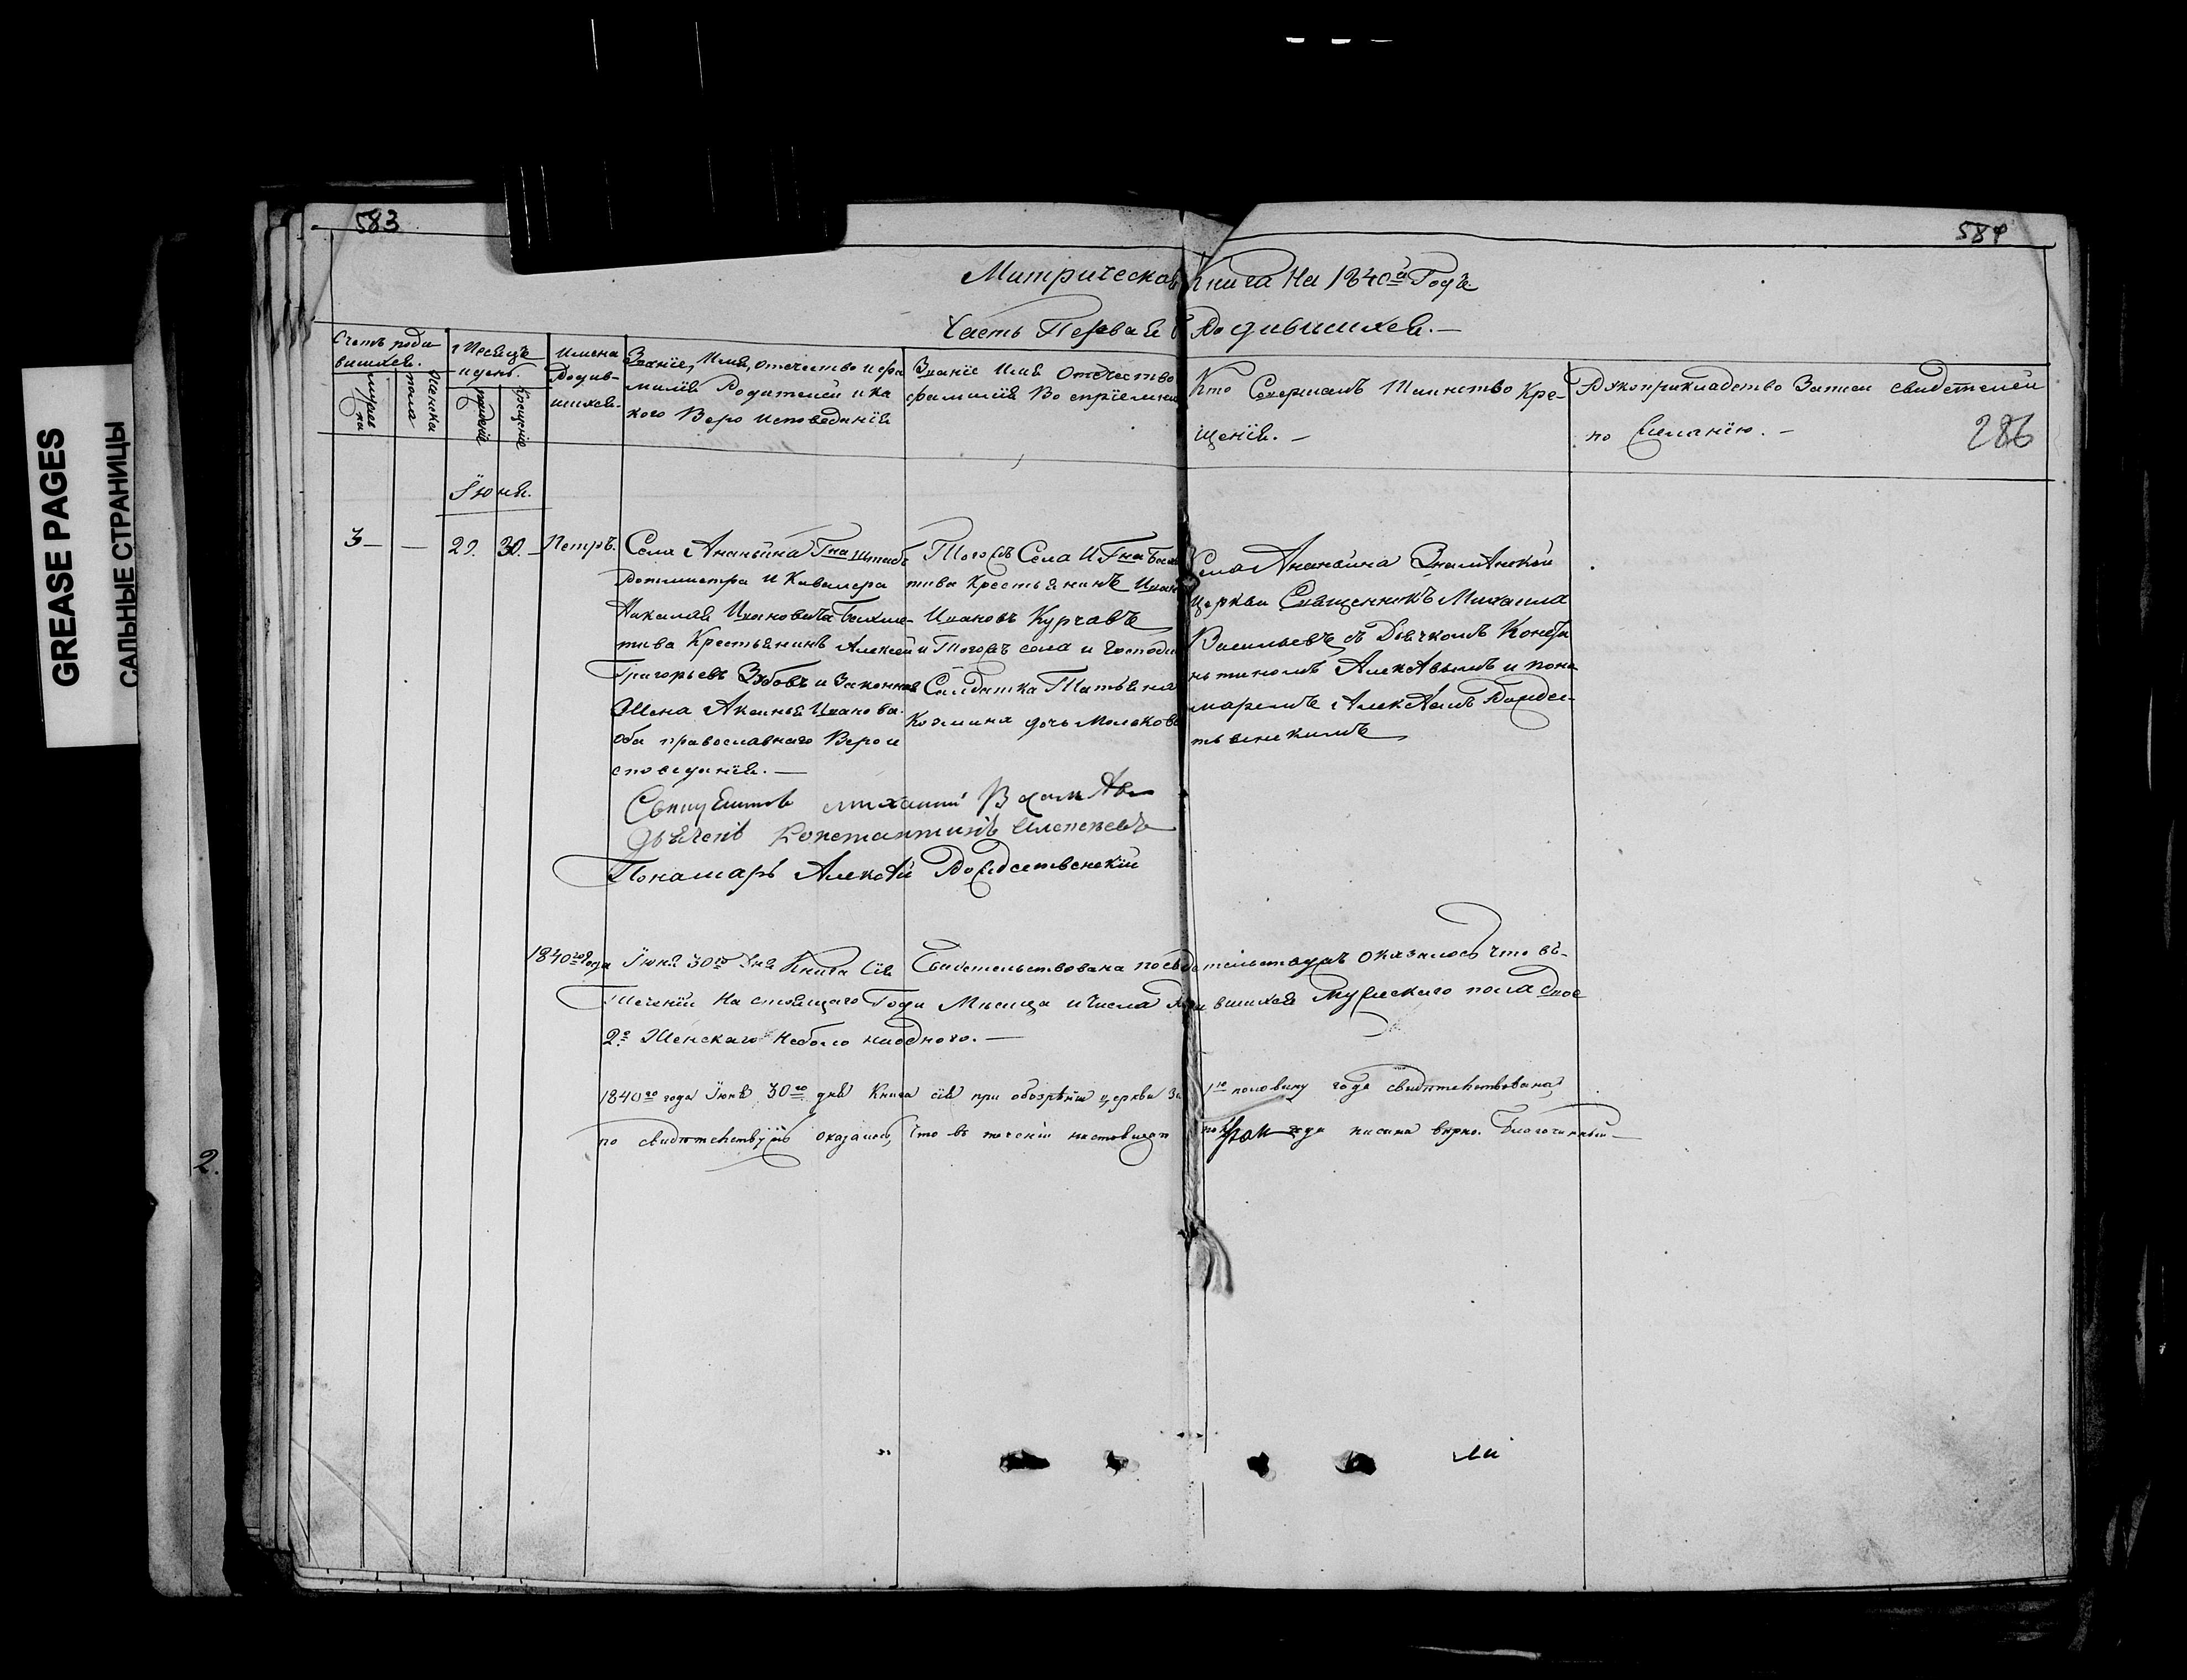 583
584
GREASE PAGES
САЛЬНЫЕ СТРАНИЦЫ
Митрическая Книга На 1840й Годъ
Часть Первая о Родившихся.—
Счетъ роди
вшихся.
мужеска
пола
женска
Месяцъ
и день.
рожденіе
крещеніе
Имена
Родив-
шихся.
Званіе, Имя, отечество и фа
милія Родителей и ка
кого Веро исповеданія
Званіе Имя Отечество
фамилія Воспріемни
Кто Совершалъ Таинство Кре-
щенія. —
Рукоприкладство Записи свидетелей
по Желанію. —
286
Іюня.
3 — — 29. 30. — Петръ.
Села Ананьина Гна Штабъ
Ротмистра и Кавалера
Николая Ивановича Бахме-
тива Крестьянинъ Алексей
Григорьевъ Зубовъ и Законная
Жена Аксинья Иванова.
оба православнаго Веро и
споведанія. —
Тогожъ Села И Гна Бахме
тива Крестьянинъ Иванъ
Ивановъ Курчавъ
и Тогожъ села и Господи
Салдатка Татьяна
Козмина дочь Молокова
Села Ананьина Знаменской
Церкви Священникъ Михаила
Васильевъ съ Дьячкомъ Конста
нтиномъ Алексѣвымъ и поно
маремъ Алексѣемъ Рождес-
твенскимъ
Священникъ Михаилъ Васильевъ
Дьячекъ Константинъ Алексеевъ
Пономарь Алексѣй Рождественскій
1840го года Іюня 30го дня Книга Сія Свидетельствована посвидетельствахъ оказалось что въ
Теченіи Настоящаго Года Месяца и Числа Родившихся Мужескаго пола двое
2е Женскаго Небыло ниодного. —
1840го года Іюня 30го дня Книга сія при обозрѣніи церкви За 1ю половину года свидѣтельствована,
по свидѣтельству оказалось, что въ теченіи настоящаго писана вѣрно. Благочинный —
2.